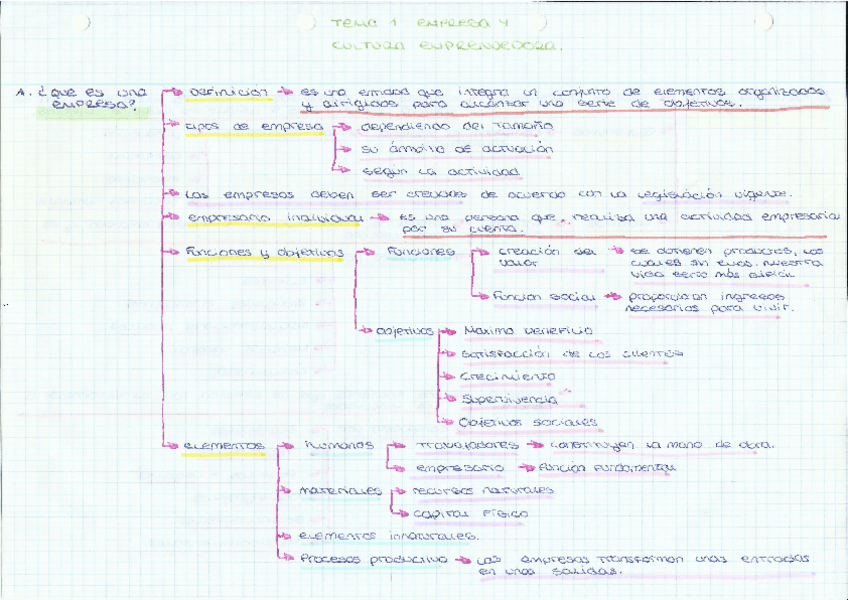 TEMA 1 EMPRESA Y
CULTURA EMPRENDEDORA.
A. ¿Qué es una
empresa?
Definición → es una entidad que integra un conjunto de elementos organizados
y dirigidos para alcanzar una serie de objetivos.
tipos de empresa → dependiendo del tamaño
→ su ámbito de actuación
→ según la actividad
→ Las empresas deben ser creadas de acuerdo con la legislación vigente.
empresario individual → Es una persona que realiza una actividad empresaria
por su cuenta.
Funciones y objetivos → Funciones → creación del
valor → se obtienen productos, los
cuales sin ellos nuestra
vida sería más difícil
→ Función social → proporcionan ingresos
necesarios para vivir.
→ objetivos → Máximo beneficio
→ Satisfacción de los clientes
→ Crecimiento
→ Supervivencia
→ Objetivos sociales
elementos → humanos → trabajadores → constituyen la mano de obra.
→ empresario → función fundamental
→ materiales → recursos naturales
→ capital físico
→ elementos innaturales.
→ Procesos productivo → Las empresas transforman unas entradas
en unas salidas.